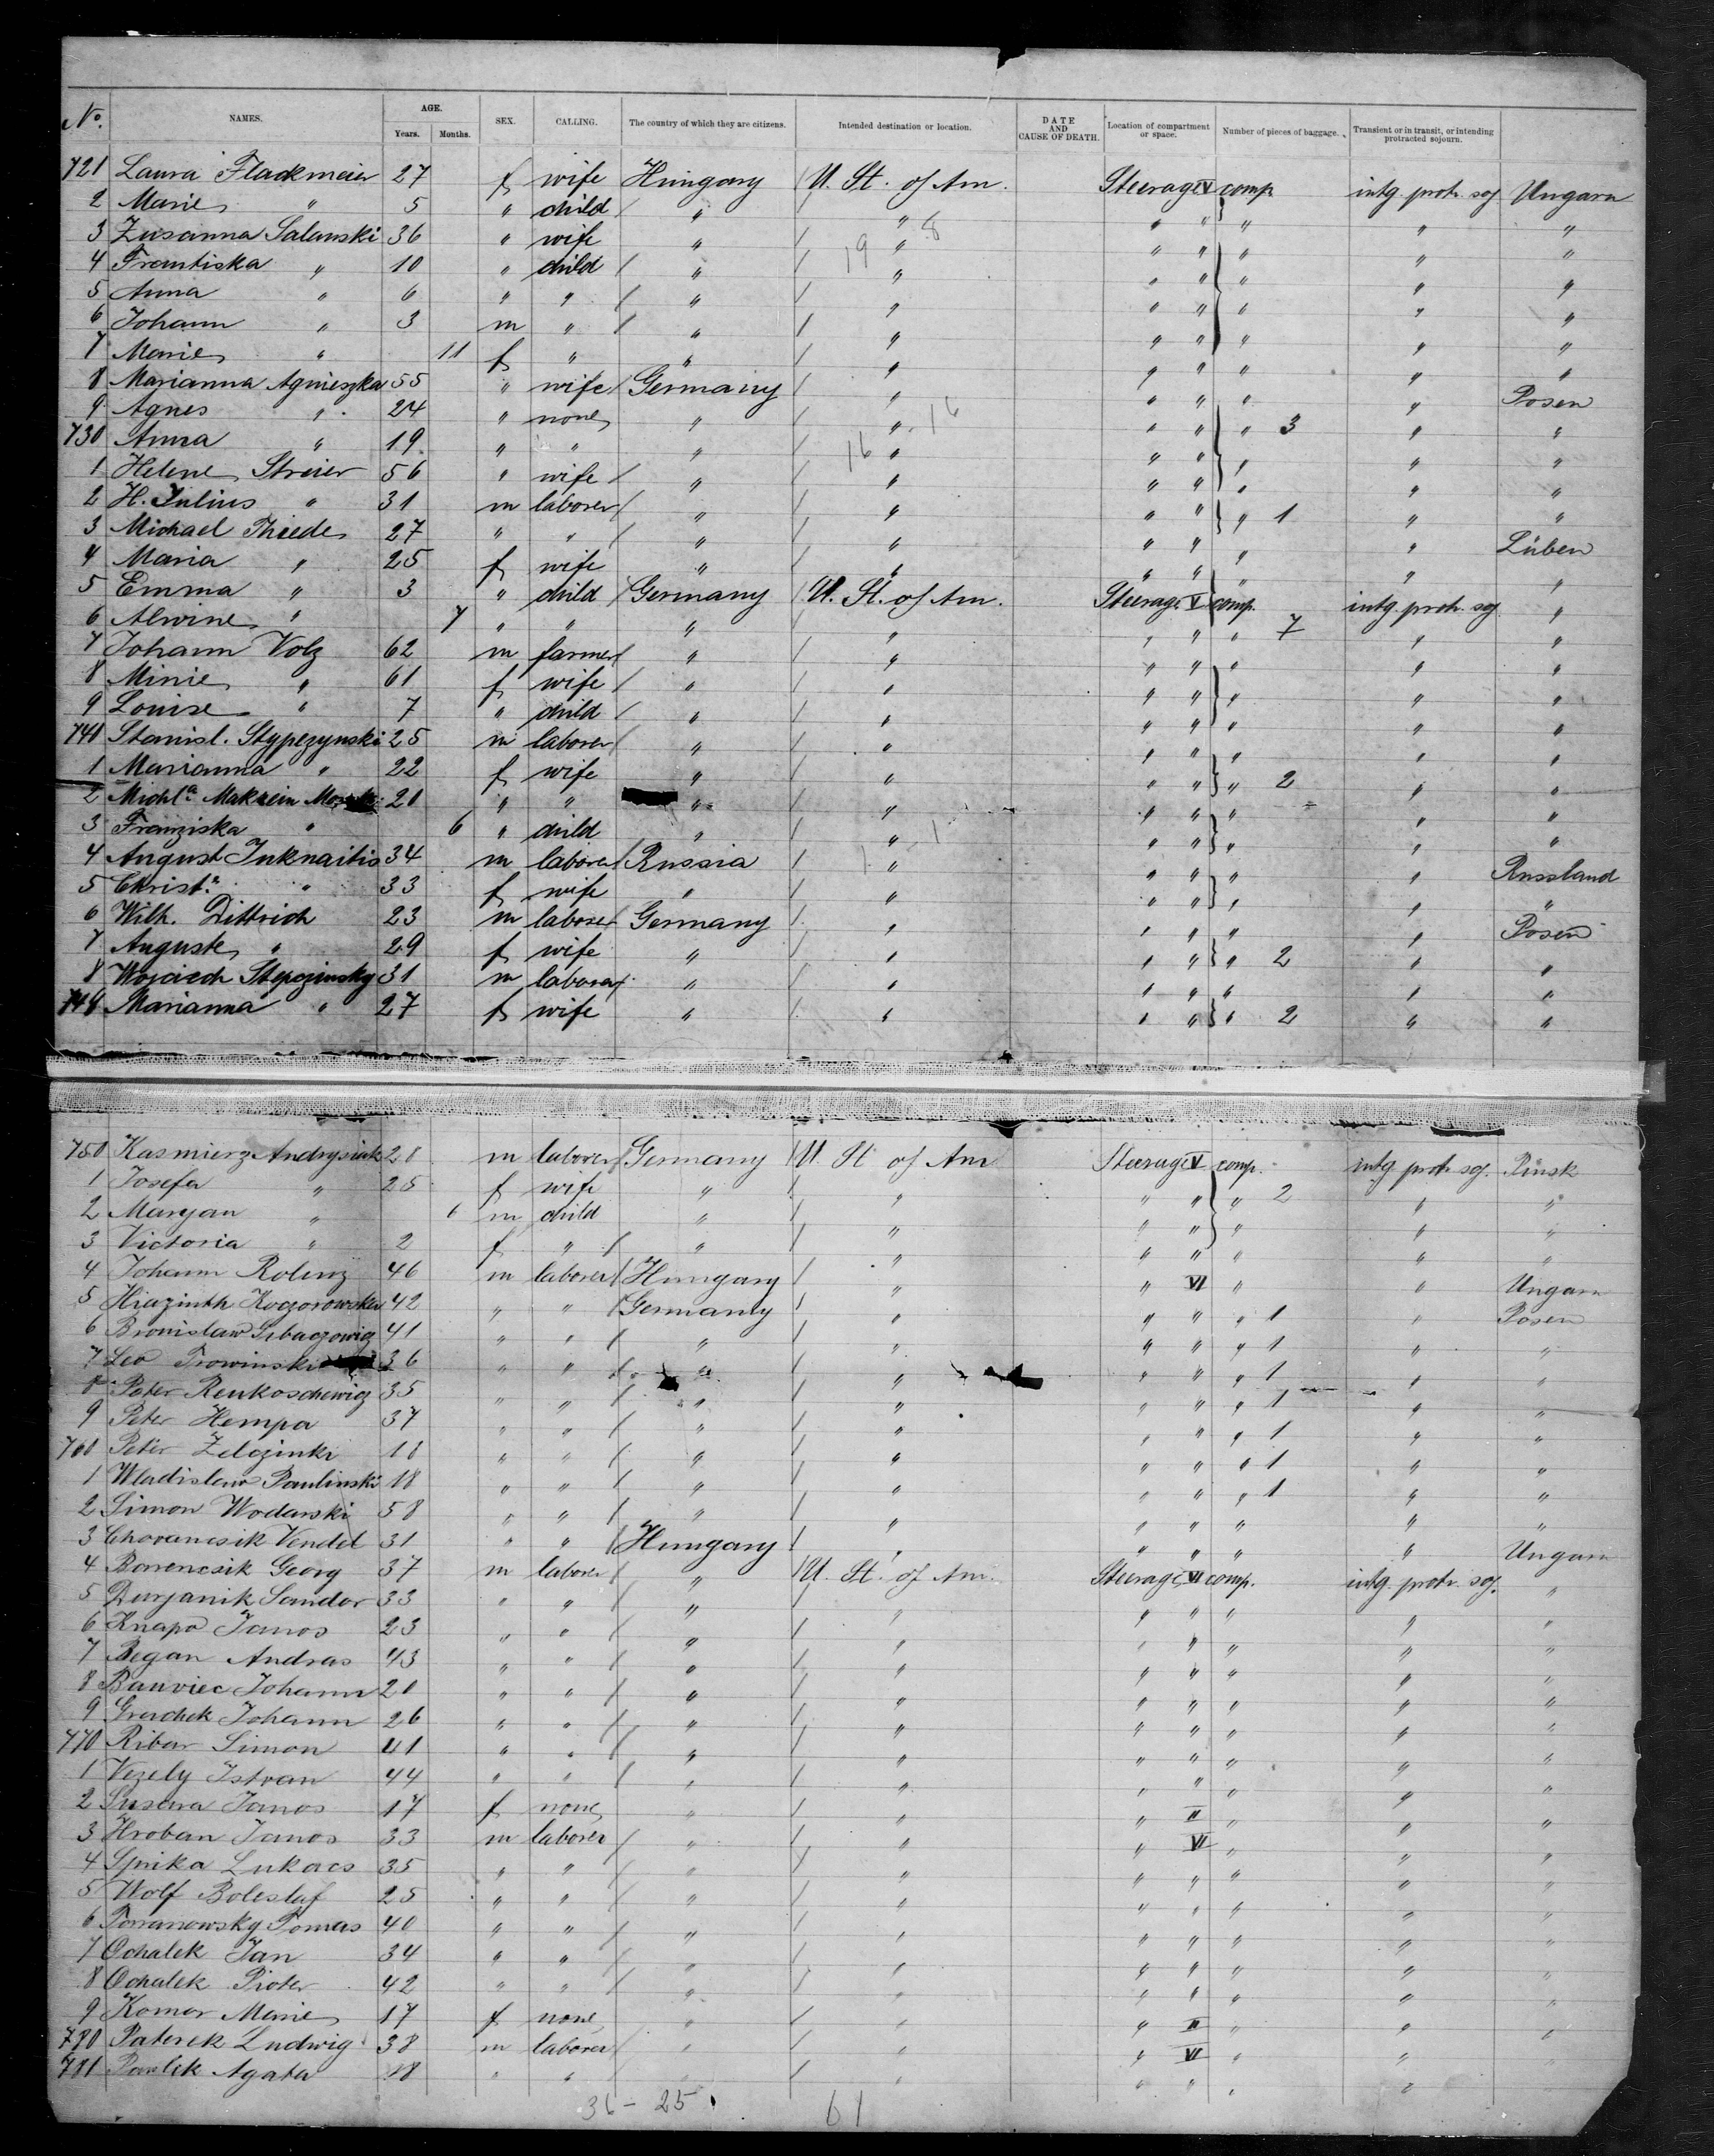 No. NAMES. AGE. Years. Months. SEX. CALLING. The country of which they are citizens. Intended destination or location. DATE AND CAUSE OF DEATH. Location of compartment or space. Number of pieces of baggage. Transient or in transit, or intending protracted sojourn.
721 Laura Flackmeier 27 f wife Hungary U. St. of Am. Steerage V comp. intg. protr. soj. Ungarn
2 Marie " 5 " child " " " " " " "
3 Zusanna Salanski 36 " wife " " " " " " "
4 Frantiska " 10 " child " " " " " " "
5 Anna " 6 " " " " " " " " "
6 Johann " 3 m " " " " " " " "
7 Marie " 11 f " " " " " " " "
8 Marianna Agnieszka 55 " wife Germany " " " " " Posen
9 Agnes " 24 " none " " " " " 3 " "
730 Anna " 19 " " " " " " " " "
1 Helene Streier 56 " wife " " " " " " "
2 H. Julius " 31 m laborer " " " " " 1 " "
3 Michael Thiede 27 " " " " " " " " Lüben
4 Maria " 25 f wife " " " " " " "
5 Emma " 3 " child Germany U. St. of Am. Steerage V comp. intg. protr. soj. "
6 Alwine " 7 " " " " " " " 7 " "
7 Johann Volz 62 m farmer " " " " " " "
8 Minie " 61 f wife " " " " " " "
9 Louise " 7 " child " " " " " " "
740 Stanisl. Stypczynski 25 m laborer " " " " " " "
1 Marianna " 22 f wife " " " " " 2 " "
2 Michla Makrein 20 " " " " " " " " "
3 Franziska " 6 " child " " " " " " "
4 August Juknaitis 34 m laborer Russia " " " " " Russland
5 Christa " 33 f wife " " " " " " "
6 Wilh. Dittrich 23 m laborer Germany " " " " " Posen
7 Auguste " 29 f wife " " " " " 2 " "
8 Wojciech Stepczinsky 31 m laborer " " " " " " "
749 Marianna " 27 f wife " " " " " 2 " "
750 Kasmierz Andrysiak 28 m laborer Germany U. St. of Am Steerage V comp. intg. protr. soj. Pinsk
1 Josefa " 25 f wife " " " " " 2 " "
2 Maryan " 6 m child " " " " " " "
3 Victoria " 2 f " " " " " " " "
4 Johann Rolinz 46 m laborer Hungary " " VI " " Ungarn
5 Hiazinth Koczorowska 42 " " Germany " " " " 1 " Posen
6 Bronislaw 41 " " " " " " " 1 " "
7 Leo Trowinski 36 " " " " " " " 1 " "
8 Peter Renkoschewicz 35 " " " " " " " 1 " "
9 Peter Hempa 37 " " " " " " " 1 " "
760 Peter Zelezinki 18 " " " " " " " 1 " "
1 Wladislaw Paulinski 18 " " " " " " " 1 " "
2 Simon Wodarski 58 " " " " " " " " "
3 Chovancsik Vendel 31 " " Hungary " " " " " Ungarn
4 Borrencsik Georg 37 m laborer " U. St. of Am. Steerage VI comp. intg. protr. soj. "
5 Durjanik Sandor 33 " " " " " " " " "
6 Knapo Janos 23 " " " " " " " " "
7 Began Andras 43 " " " " " " " " "
8 Bauviec Johann 20 " " " " " " " " "
9 Grudek Johann 26 " " " " " " " " "
770 Ribar Simon 41 " " " " " " " " "
1 Vezely Istvan 44 " " " " " " " " "
2 Susana Janos 17 f none " " " II " " "
3 Hroban Janos 33 m laborer " " " VI " " "
4 Spika Lukacs 35 " " " " " " " " "
5 Wolf Boleslaf 25 " " " " " " " " "
6 Torranowsky Tomas 40 " " " " " " " " "
7 Ochalek Jan 34 " " " " " " " " "
8 Ochalek Pioter 42 " " " " " " " " "
9 Komor Marie 17 f none " " " II " " "
780 Paterek Ludwig 38 m laborer " " " VI " " "
781 Pawlek Agata 18 " " " " " " " " "
36 - 25 61